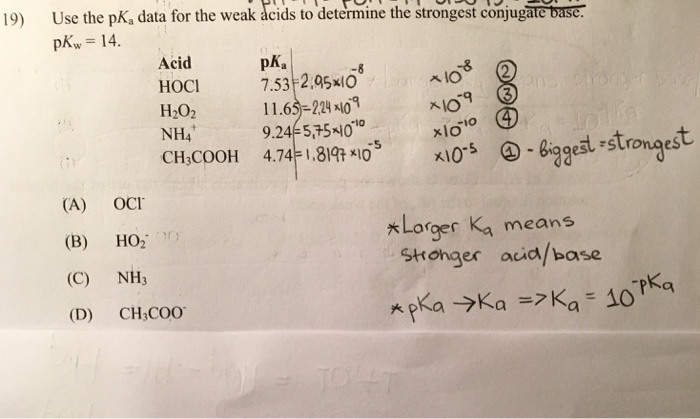 19) Use the pKₐ data for the weak acids to determine the strongest conjugate base.
pK_w = 14.
Acid pKₐ
HOCl 7.53 = 2.95×10⁻⁸ ×10⁻⁸ ②
H₂O₂ 11.65 = 2.24×10⁻⁹ ×10⁻⁹ ③
NH₄⁺ 9.24 = 5.75×10⁻¹⁰ ×10⁻¹⁰ ④
CH₃COOH 4.74 = 1.8197×10⁻⁵ ×10⁻⁵ ① - Biggest = strongest
(A) OCl⁻
(B) HO₂⁻
(C) NH₃
(D) CH₃COO⁻
*Larger Kₐ means
stronger acid/base
*pKa → Ka => Ka = 10^-pKa